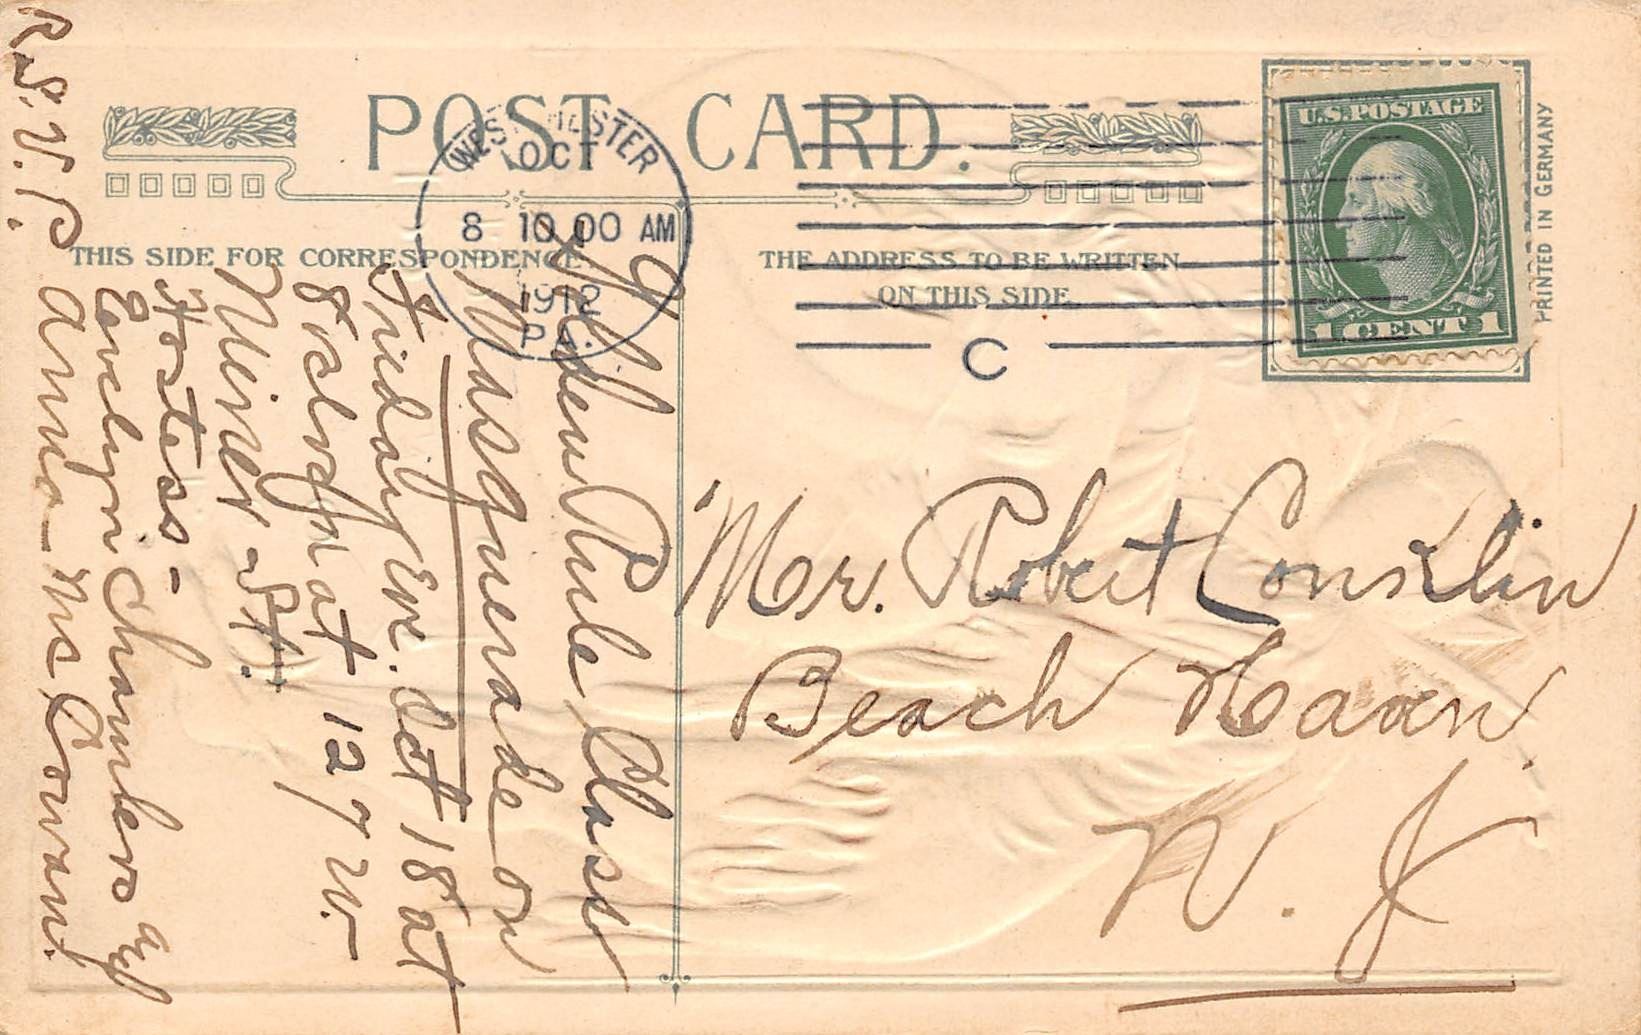 POST CARD.
WEST CHESTER
OCT
8 10 00 AM
1912
PA.
C
U.S. POSTAGE
1 CENT 1
PRINTED IN GERMANY
THIS SIDE FOR CORRESPONDENCE
THE ADDRESS TO BE WRITTEN
ON THIS SIDE
Golden Rule Class
Masquerade on
Friday Eve. Oct 18 at
8 o'clock at 127 W.
Miner St.
Hostess -
Evelyn Chambers and
Anna Mc Cowan.
R.S.V.P.
Mr. Robert Conklin
Beach Haven
N. J.